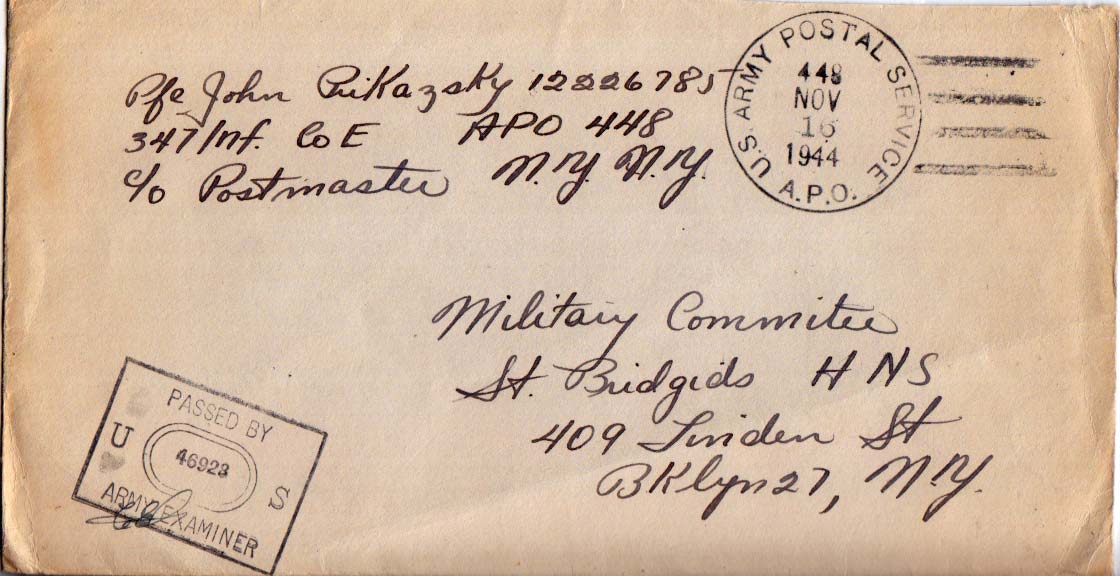 Pfc John Prikazsky 12226785
347 Inf. Co E APO 448
c/o Postmaster N.Y. N.Y.
U.S. ARMY POSTAL SERVICE
448
NOV
16
1944
A.P.O.
Military Commitee
St. Bridgids H N S
409 Linden St
BKlyn 27, N.Y.
PASSED BY
U S
46923
ARMY EXAMINER